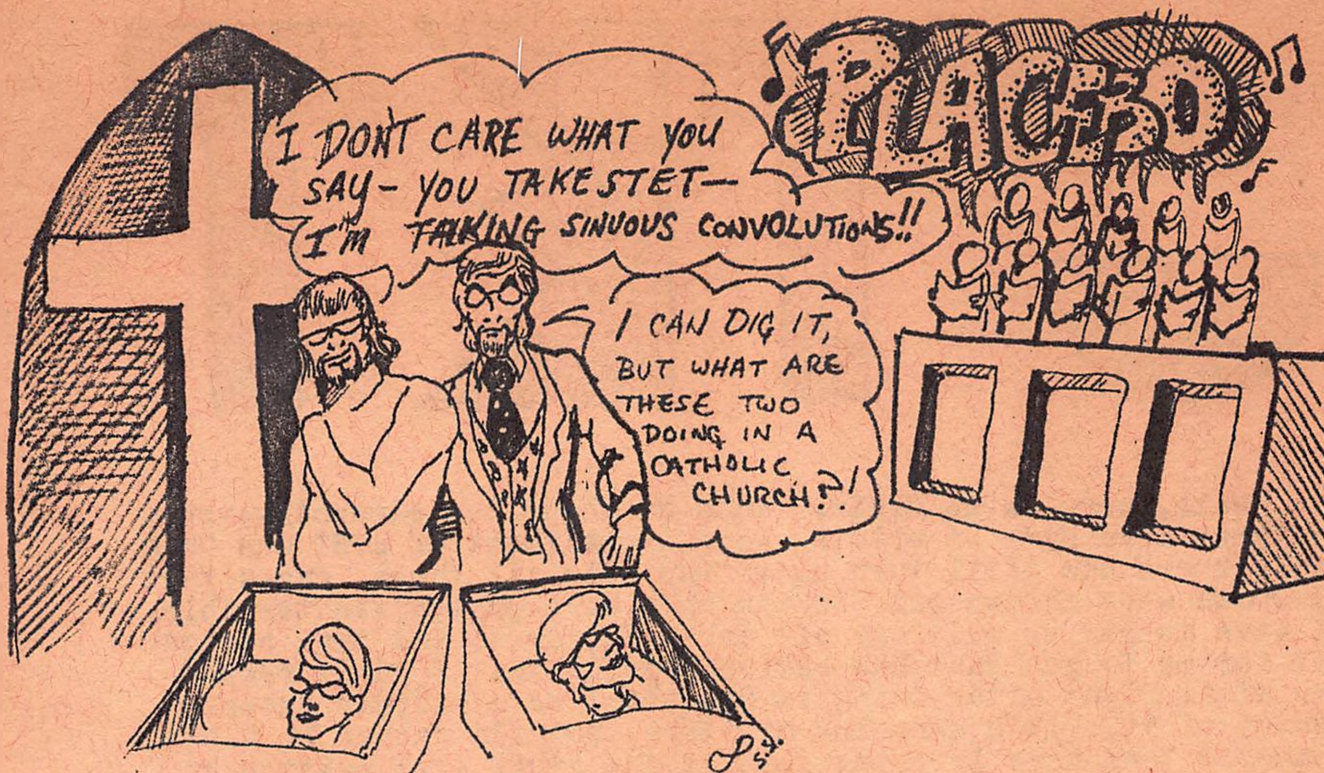 I DON'T CARE WHAT YOU
SAY - YOU TAKE STET-
I'M TALKING SINUOUS CONVOLUTIONS!!
PLACEBO
I CAN DIG IT,
BUT WHAT ARE
THESE TWO
DOING IN A
CATHOLIC
CHURCH?!